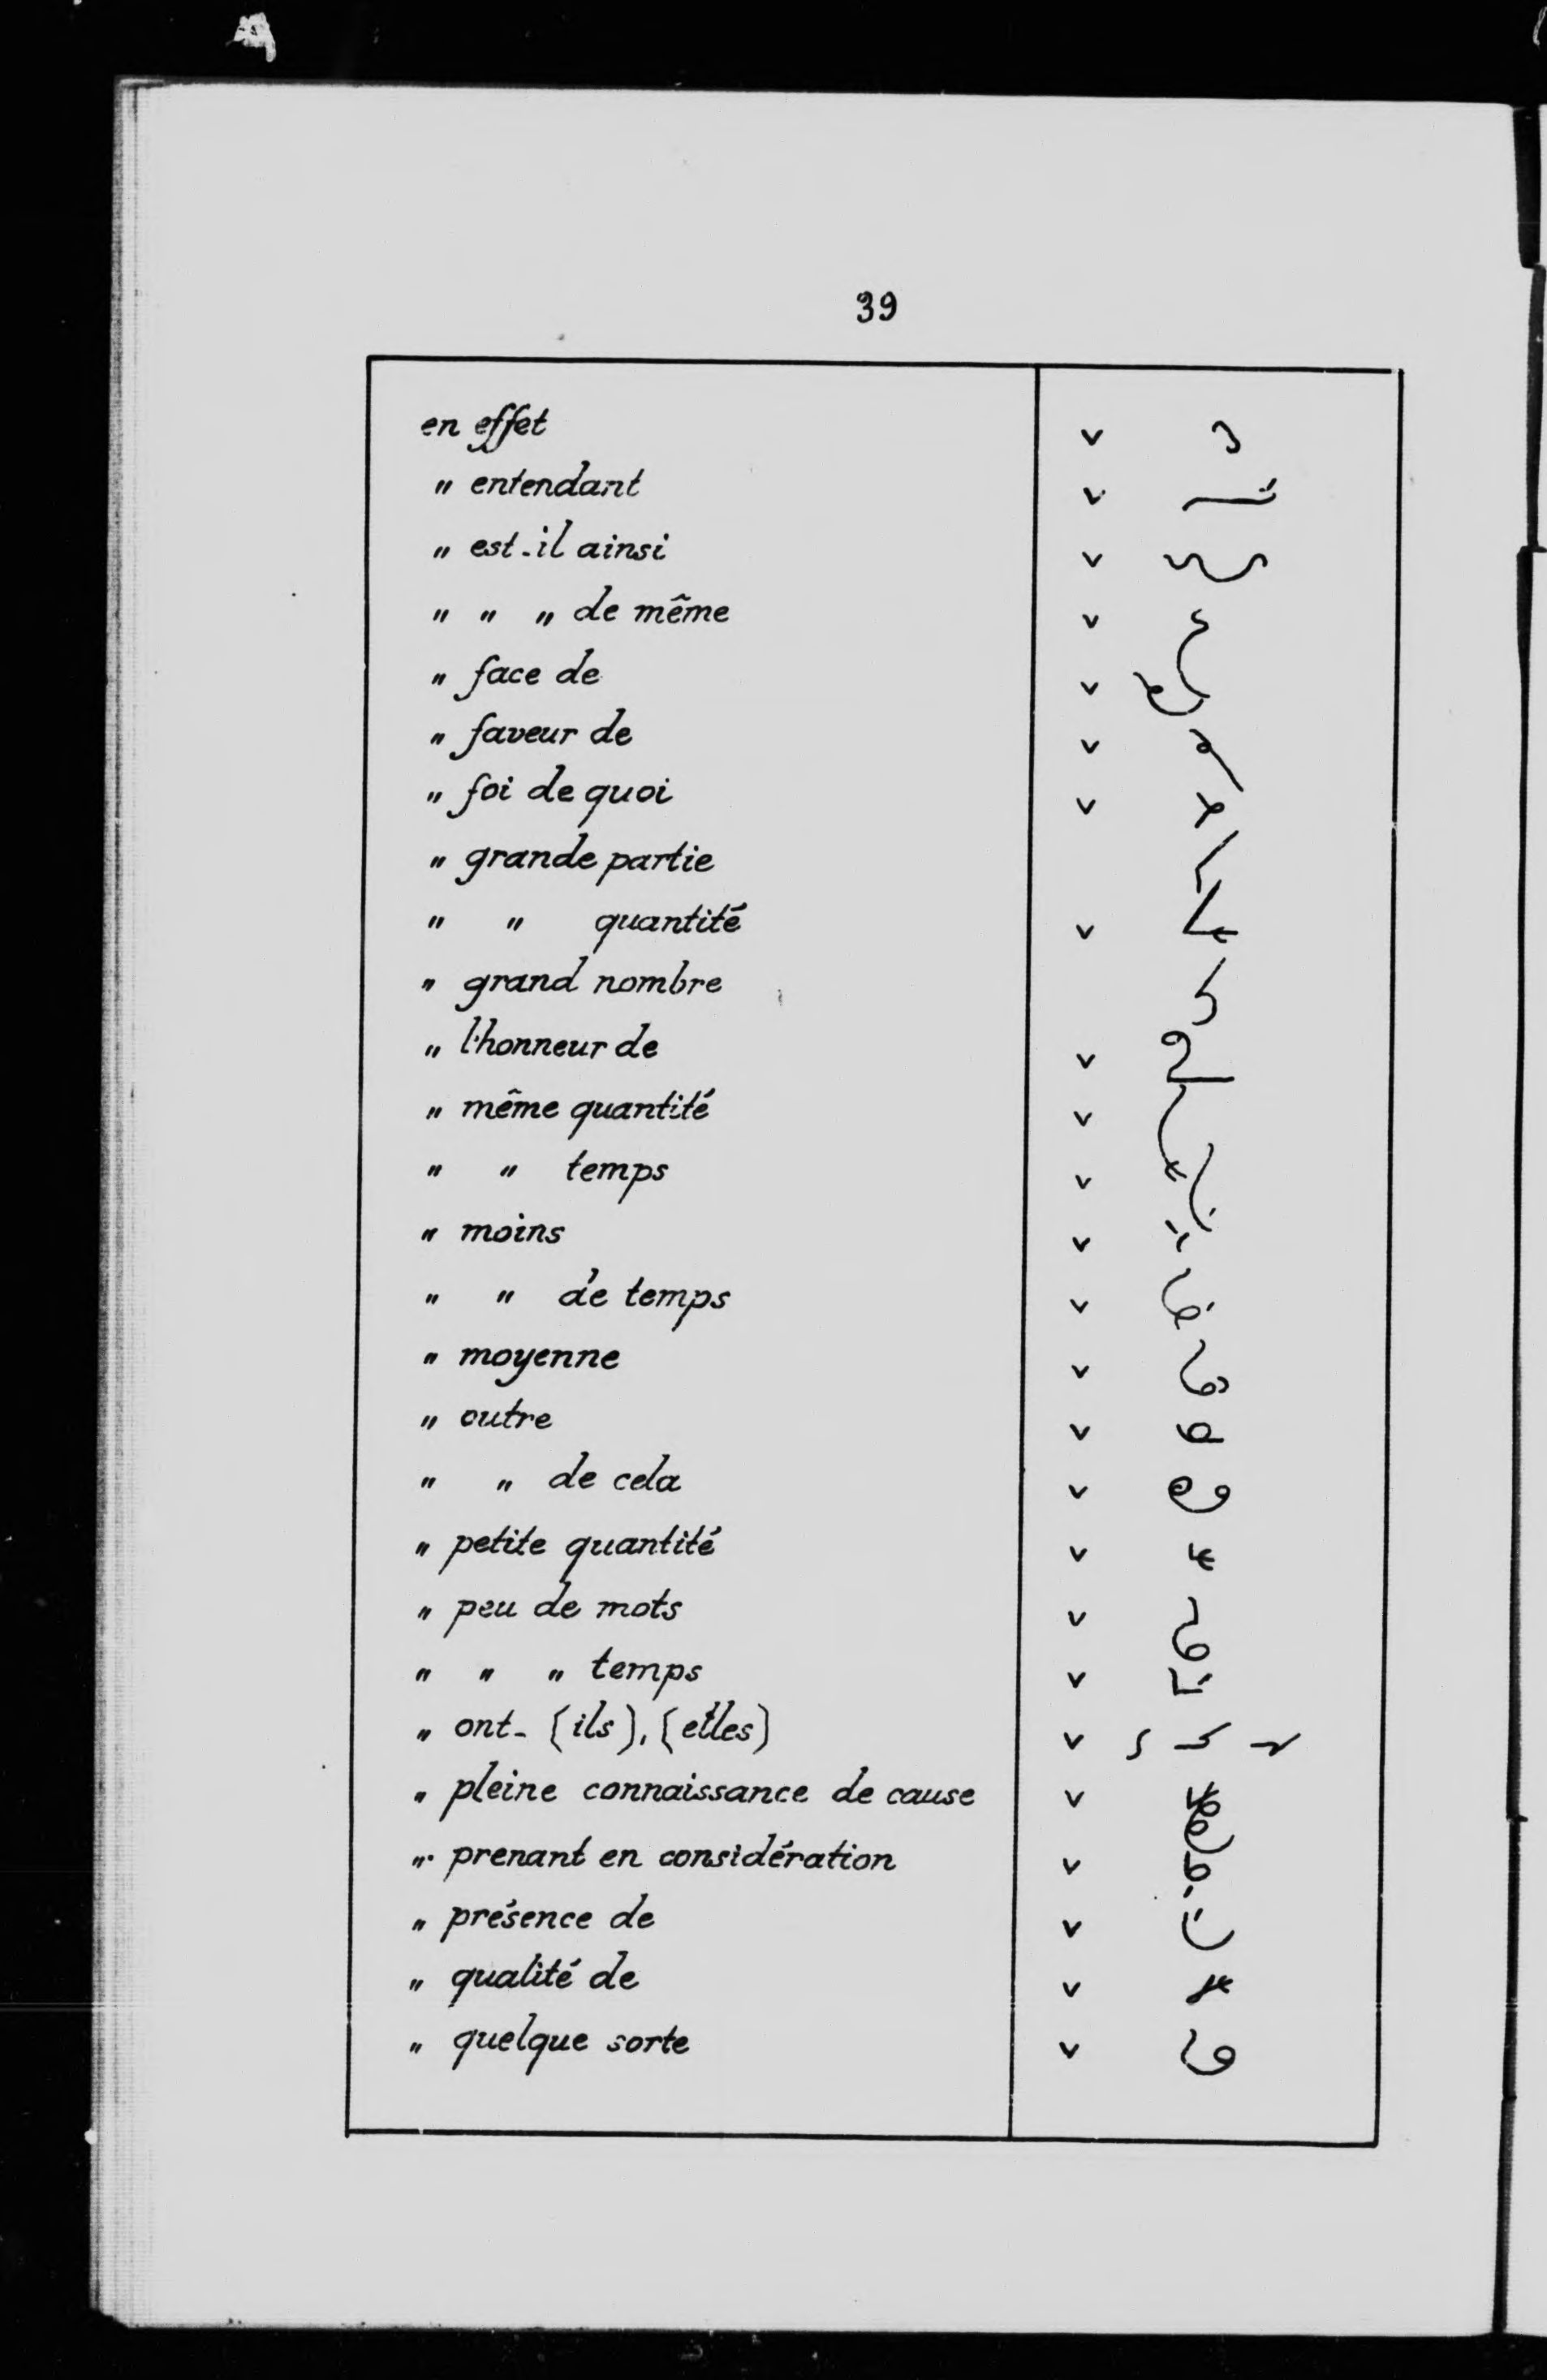 39
en effet v
" entendant v
" est-il ainsi v
" " " de même v
" face de v
" faveur de v
" foi de quoi v
" grande partie
" " quantité v
" grand nombre
" l'honneur de v
" même quantité v
" " temps v
" moins v
" " de temps v
" moyenne v
" outre v
" " de cela v
" petite quantité v
" peu de mots v
" " " temps v
" ont- (ils), (elles) v
" pleine connaissance de cause v
" prenant en considération v
" présence de v
" qualité de v
" quelque sorte v